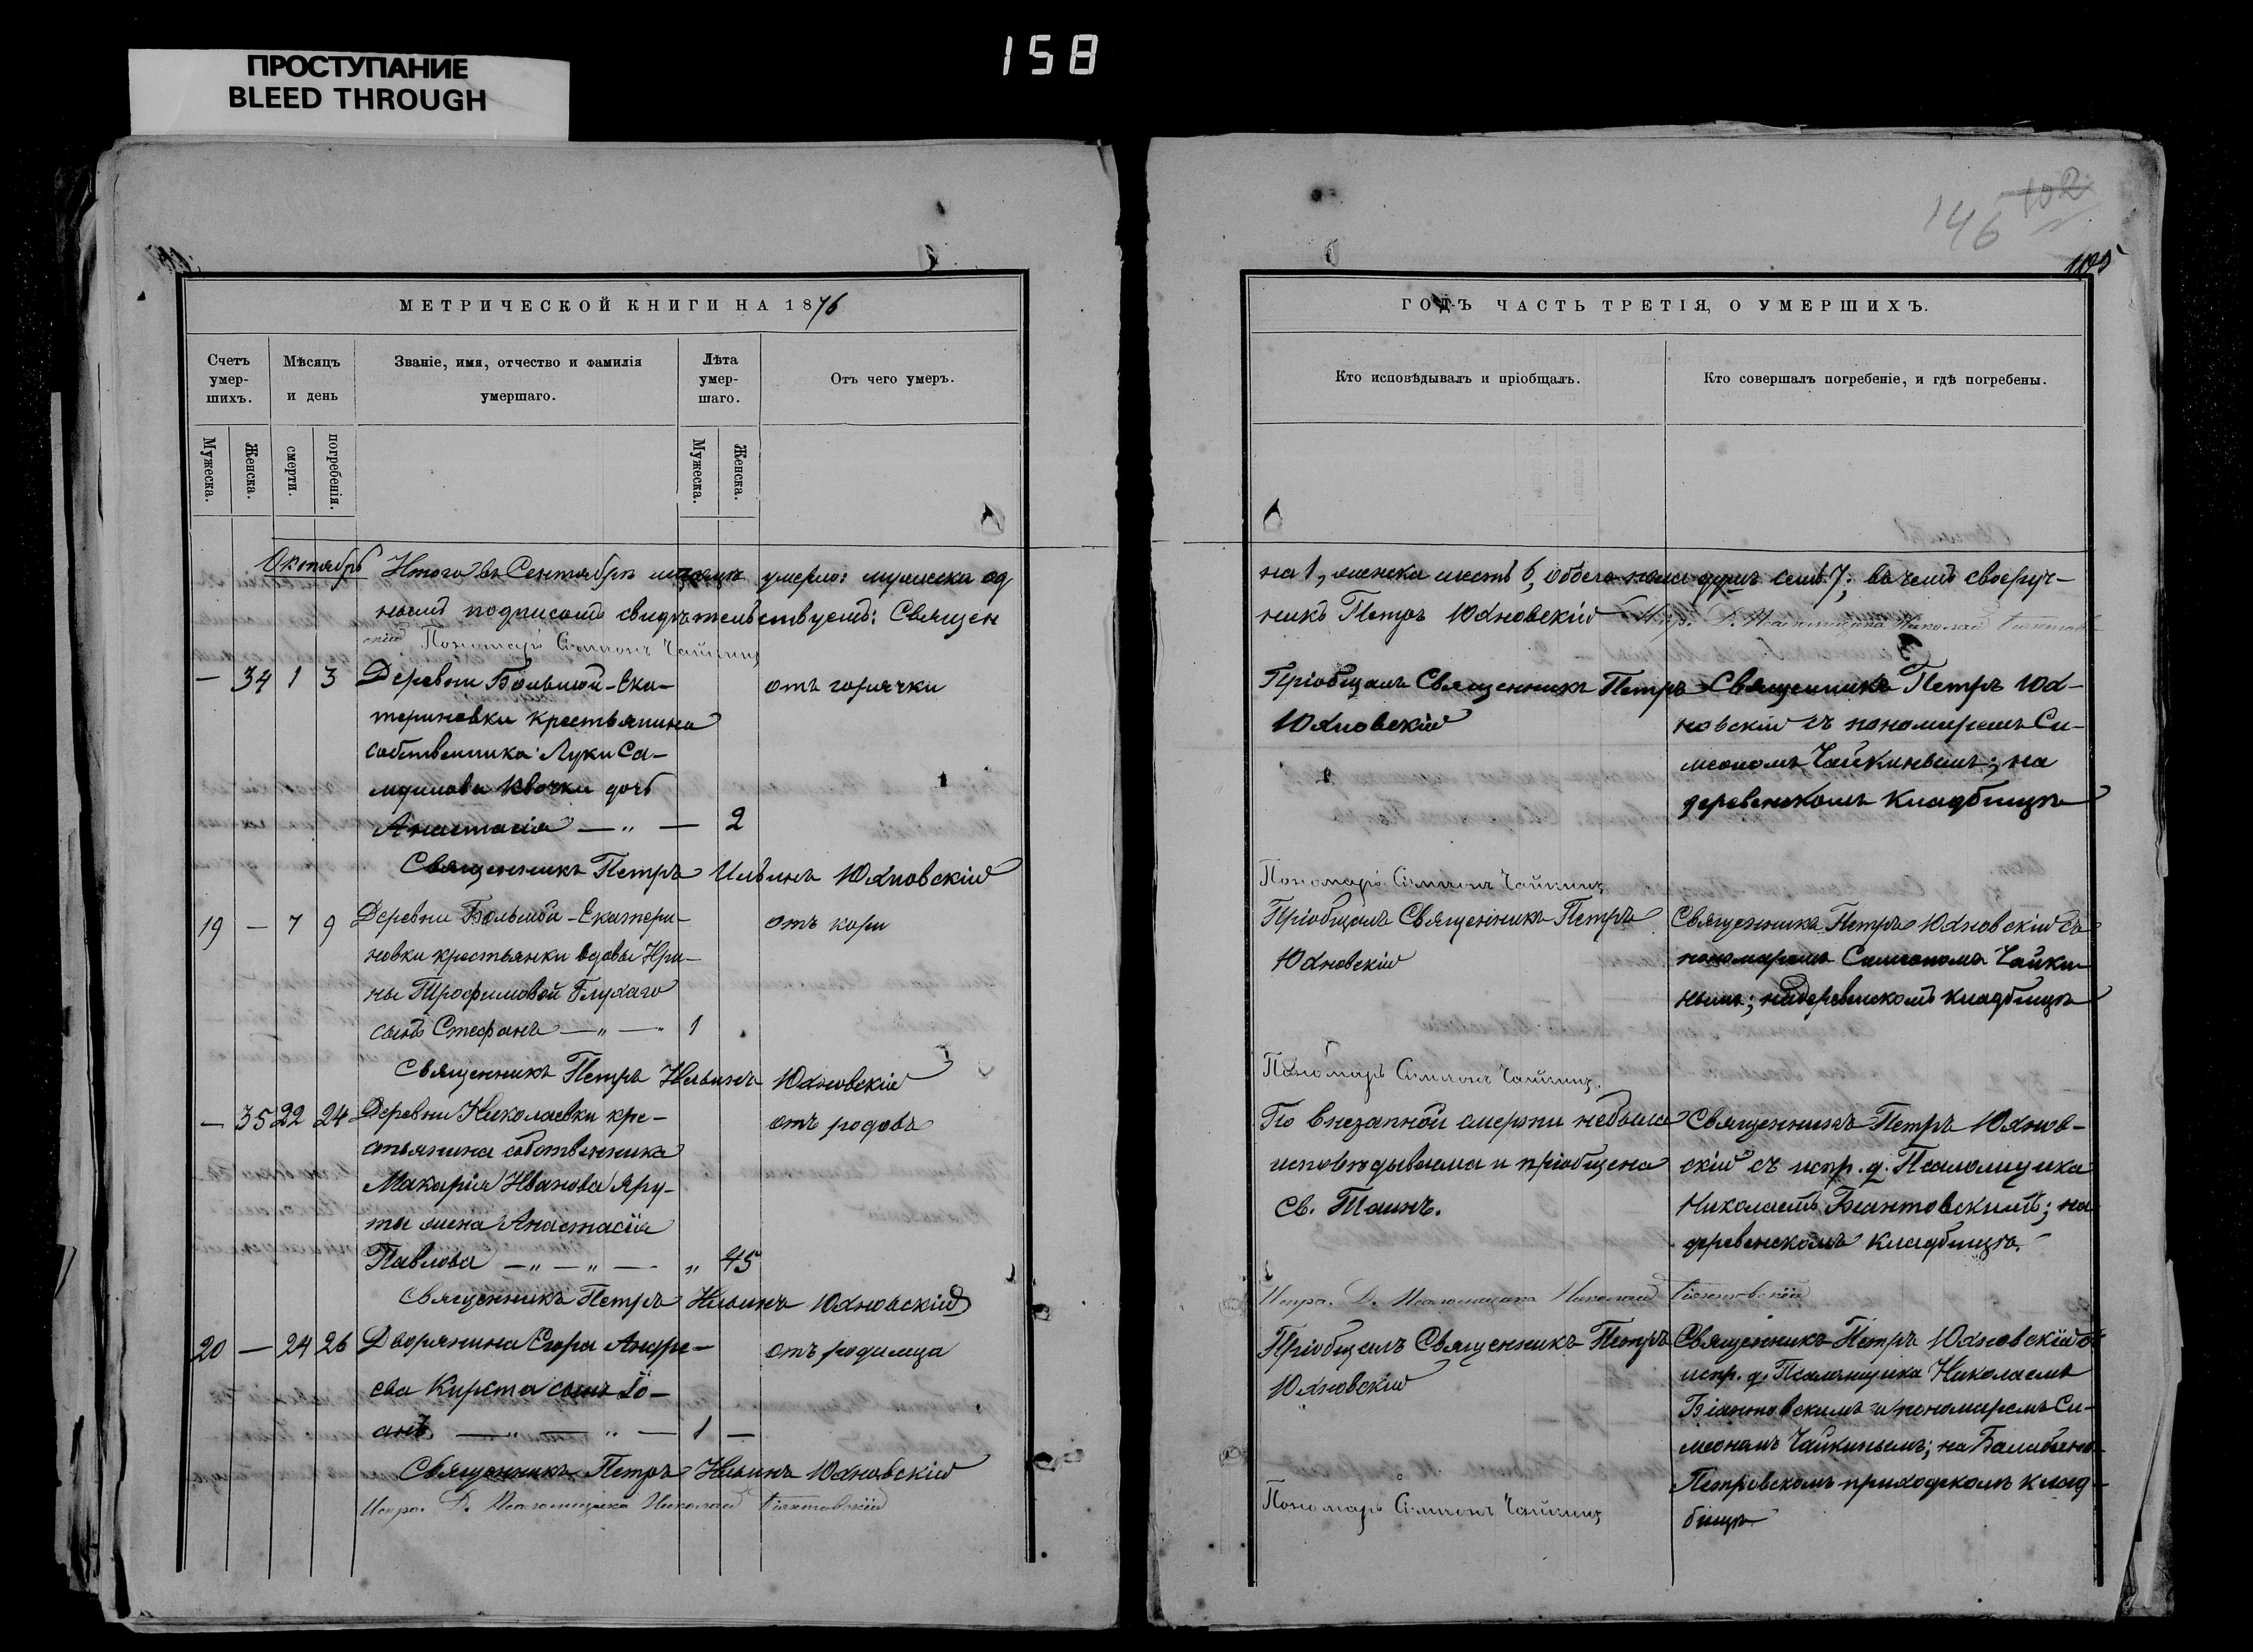 158
ПРОСТУПАНИЕ
BLEED THROUGH
МЕТРИЧЕСКОЙ КНИГИ НА 1876
Счетъ умер-шихъ.
Мѣсяцъ и день
Званіе, имя, отчество и фамилія умершаго.
Лѣта умер-шаго.
Отъ чего умеръ.
Мужеска.
Женска.
смерти.
погребенія.
Мужеска.
Женска.
Октябрь
Итого въ Сентябрѣ мѣсяцѣ умерло: мужеска од
нымъ подписомъ свидѣтельствуемъ: Священ
Пономарь Симионъ Чайкинъ
— 34 1 3 Деревни Большой-Ека- отъ горячки
териновки крестьянина
собственника Луки Са-
муилова Квочки дочь
Анастасія — „ — 2
Священникъ Петръ Ильинъ Юхновскій
19 — 7 9 Деревни Большой-Екатери- отъ кори
новки крестьянки вдовы Ири-
ны Трофимовой Глухаго
сынъ Стефанъ — „ — „ 1
Священникъ Петръ Ильинъ Юхновскій
— 35 22 24 Деревни Николаевки кре- отъ родовъ
стьянина собственника
Макарія Иванова Яру-
ты жена Анастасія
Павлова — „ — „ — „ 45
Священникъ Петръ Ильинъ Юхновскій
20 — 24 26 Дворянина Егора Андре- отъ родимца
ева Кирста сынъ Іо-
анъ. — „ — „ — 1 —
Священникъ Петръ Ильинъ Юхновскій
Испр. Д. Псаломщика Николай Біянтовскій
146 102
105
ГОДЪ ЧАСТЬ ТРЕТІЯ, О УМЕРШИХЪ.
Кто исповѣдывалъ и пріобщалъ.
Кто совершалъ погребеніе, и гдѣ погребены.
на 1, женска шесть 6, обоего пола душъ семь 7; въ чемъ своеруч-
никъ Петръ Юхновскій Испр. Д. Псаломщика Николай Біянтов-
Пріобщалъ Священникъ Петръ
Юхновскій
Священникъ Петръ Юх-
новскій съ пономаремъ Си-
меономъ Чайкинымъ; на
деревенскомъ кладбищѣ
Пономарь Симионъ Чайкинъ
Пріобщалъ Священникъ Петръ
Юхновскій
Священникъ Петръ Юхновскій съ
пономаремъ Симеономъ Чайки-
нымъ; на деревенскомъ кладбищѣ
Пономарь Симионъ Чайкинъ.
По внезапной смерти небыла
исповѣдываема и пріобщена
Св. Таинъ.
Священникъ Петръ Юхнов-
скій съ испр. д. Псаломщика
Николаемъ Біянтовскимъ; на
деревенскомъ кладбищѣ.
Испр. Д. Псаломщика Николай Біянтовскій
Пріобщалъ Священникъ Петръ
Юхновскій
Священникъ Петръ Юхновскій съ
испр. д. Псаломщика Николаемъ
Біянтовскимъ и пономаремъ Си-
меономъ Чайкинымъ; на Балабино-
Петровскомъ приходскомъ клад-
бищѣ
Пономарь Симионъ Чайкинъ